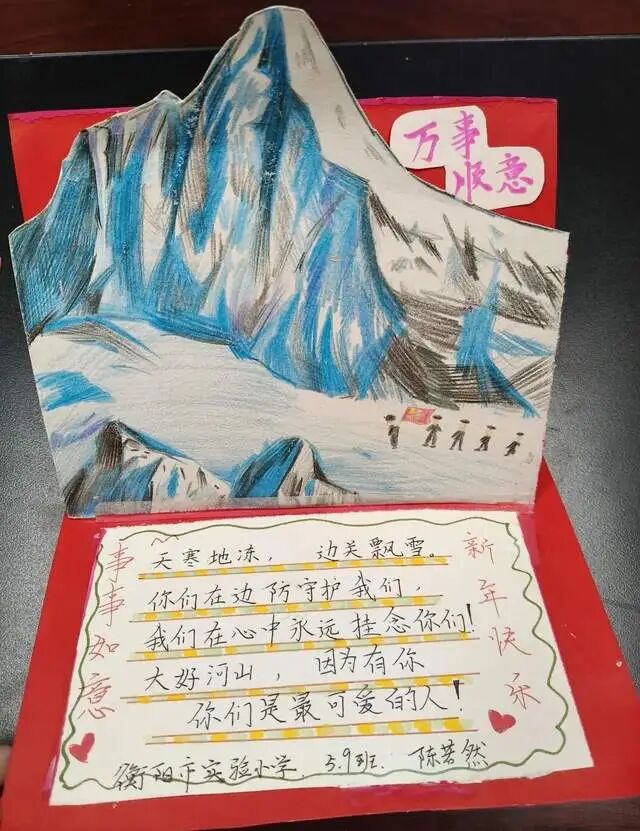 万事
顺意
事事如意
天寒地冻， 边关飘雪。
你们在边防守护我们，
我们在心中永远挂念你们！
大好河山， 因为有你
你们是最可爱的人！
新年快乐
衡阳市实验小学. 5.9班. 陈若然